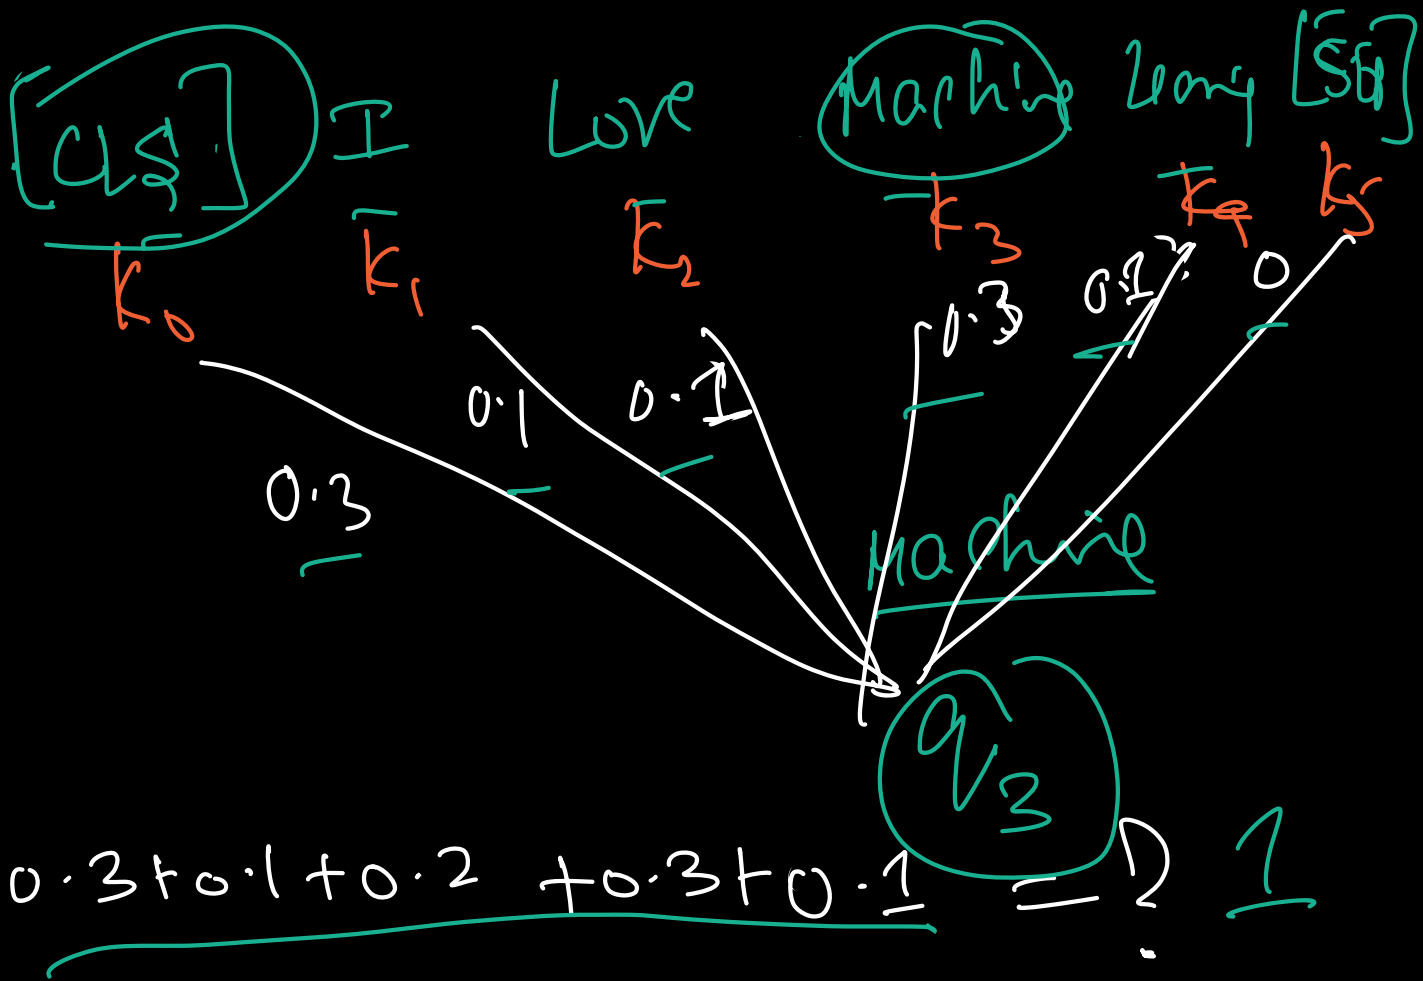 [CLS] I Love Machine [SEP]
K0 K1 K2 K3 K4 K5
0.3 0.1 0.1 0.3 0.1 0
Machine
q3
0.3+0.1+0.2 +0.3+0.1 = ? 1